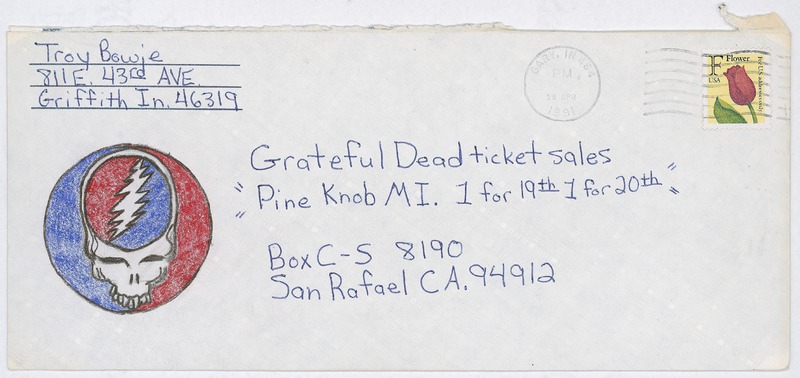 Troy Bowie
811 E. 43rd AVE.
Griffith In. 46319
GARY, IN 464
PM
1991
F Flower
USA
For U.S. addresses only
Grateful Dead ticket sales
"Pine Knob MI. 1 for 19th 1 for 20th"
Box C-S 8190
San Rafael CA. 94912